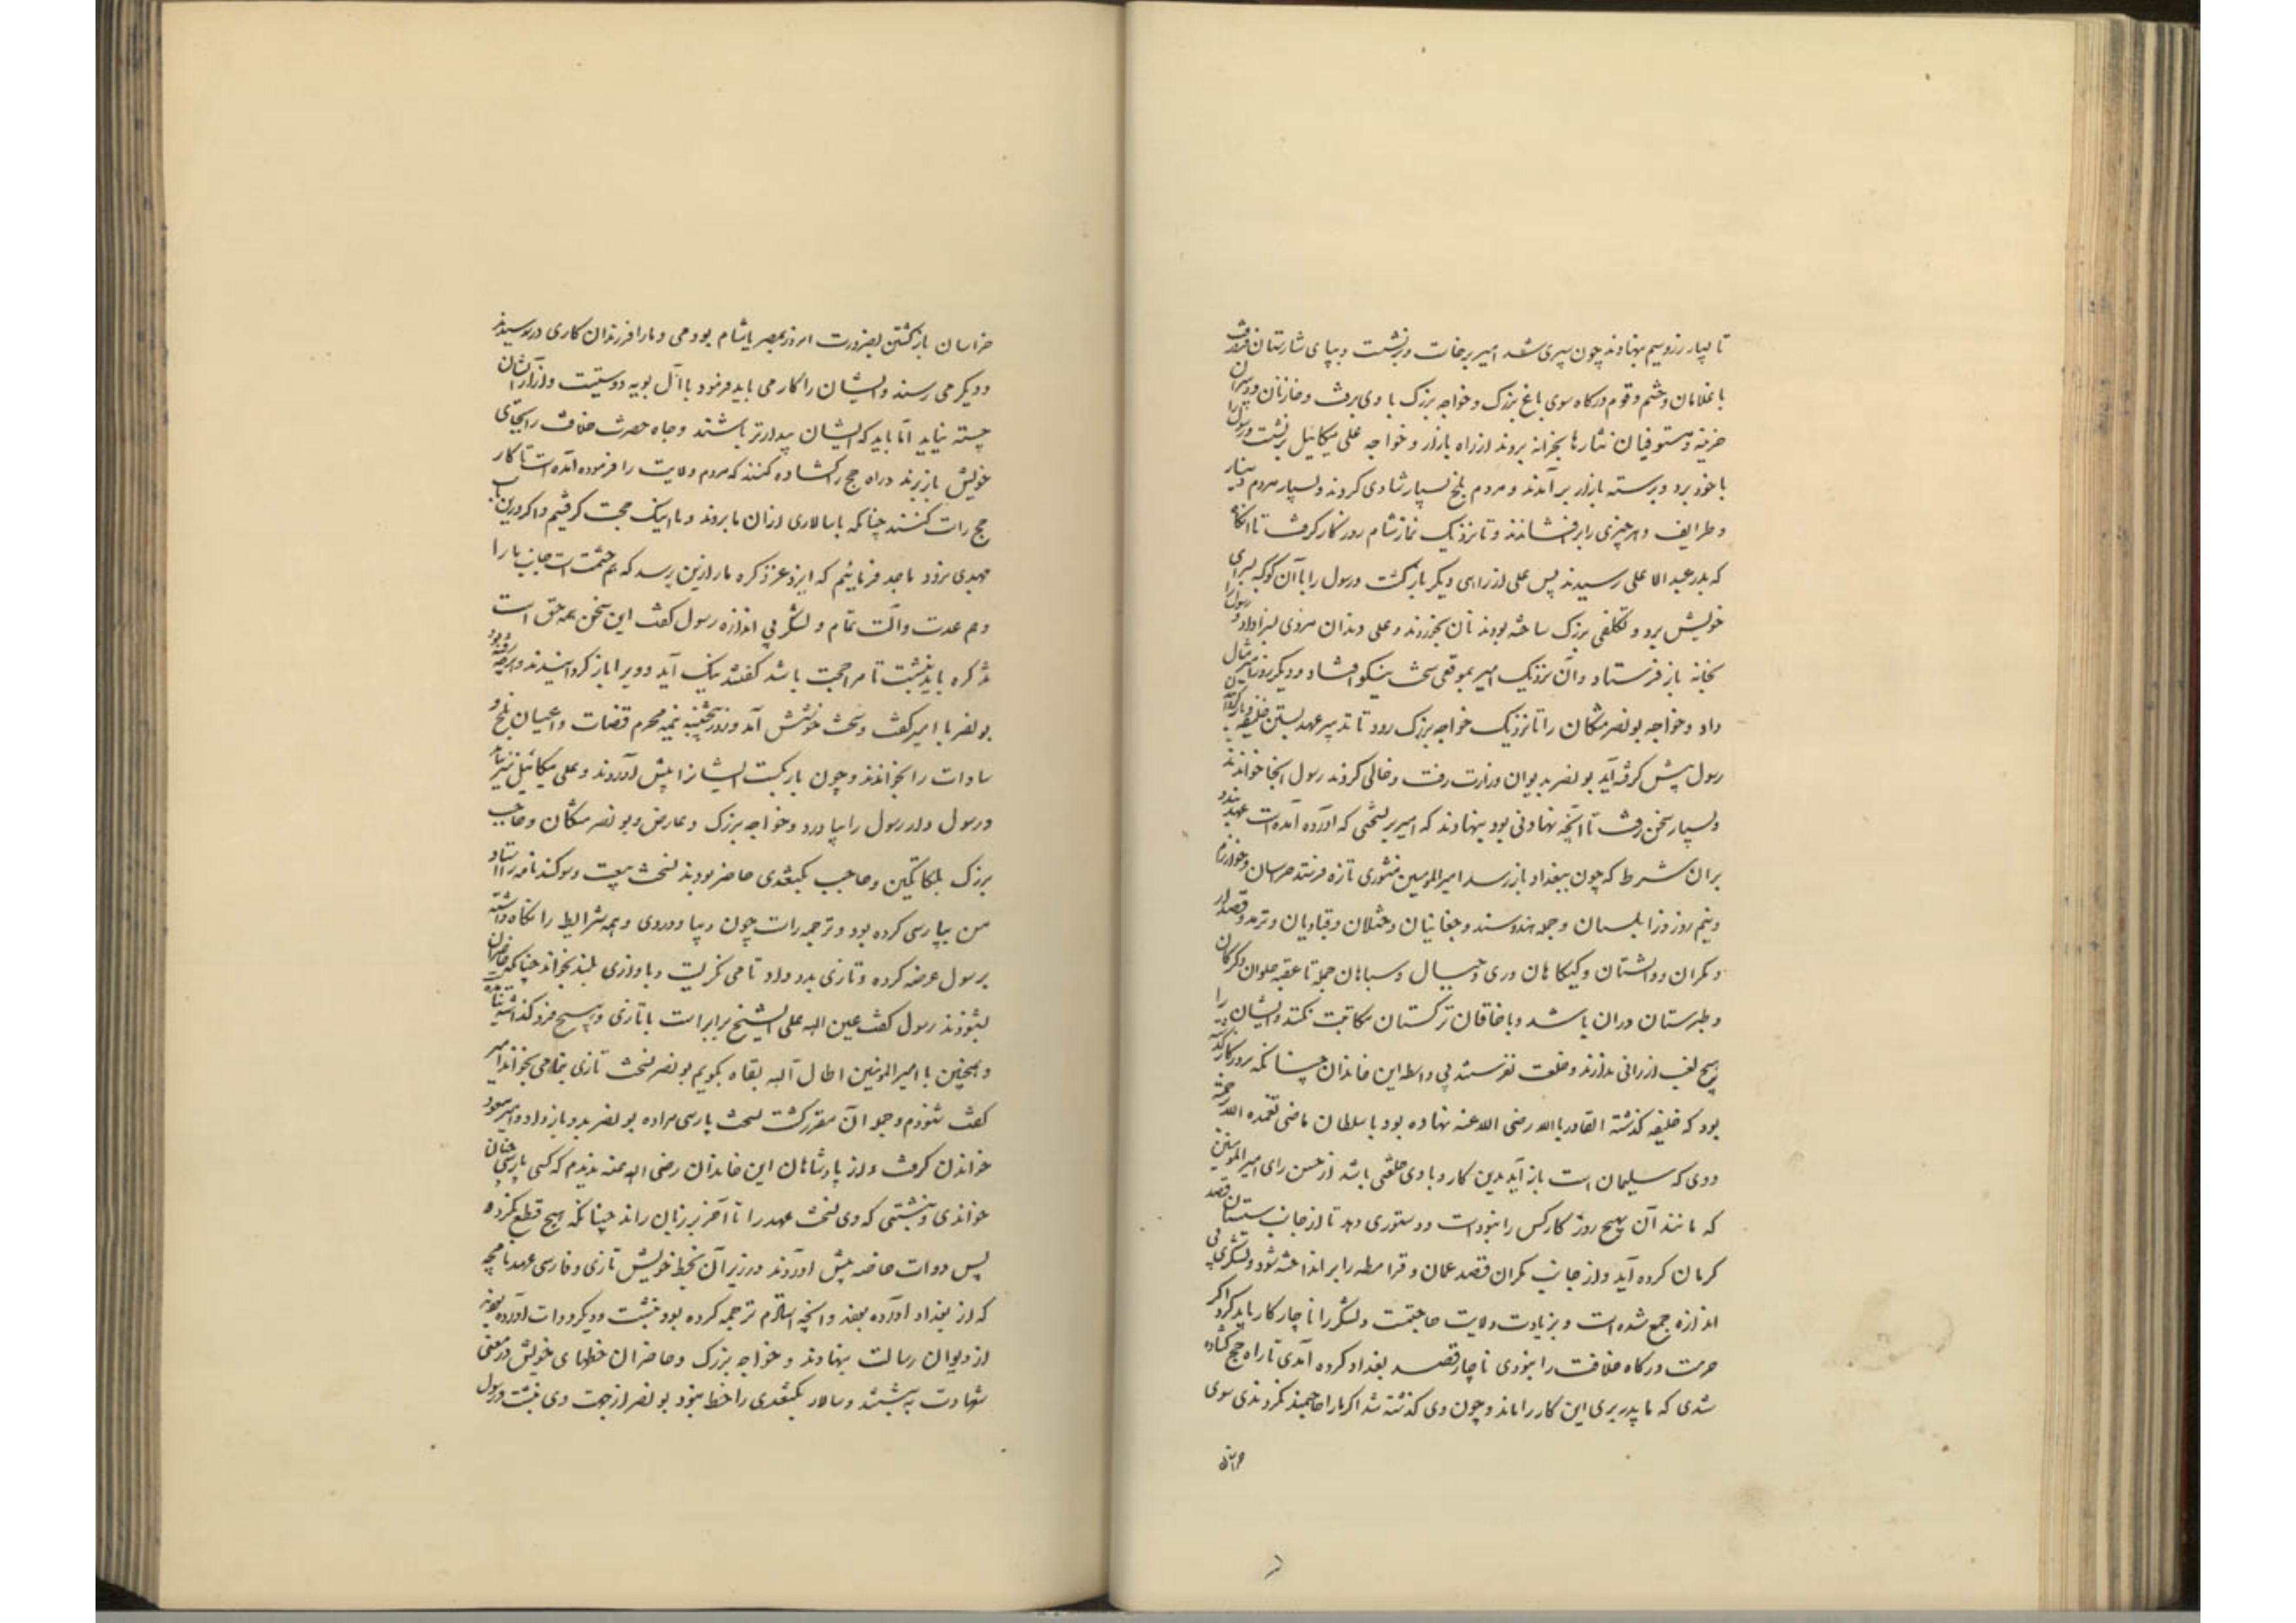 تا بسیار زر و سیم بنهادند چون سپری شد امیر برخاست و برنشست و بپای شارستان فرود رفت
با غلامان و حشم و قوم درگاه سوی باغ بزرگ و خواجه بزرگ با وی برفت و خازنان و دبیران
خزینه و مستوفیان نثارها بخزانه بردند از راه بازار و خواجه علی میکائیل برنشست و رسول را
با خود برد و برسته بازار برآمدند و مردم بلخ بسیار شادی کردند و بسیار مردم دینار
و طرایف و هر چیزی را برافشاندند و تا نزدیک نماز شام روزگار گرفت تا آنگاه
که بدر عبدالاعلی رسیدند پس علی از راهی دیگر بازگشت و رسول را با آن کوکبه بسرای
خویش برد و تکلفی بزرگ ساخته بودند نان بخوردند و علی دندان مزدی بسزا داد و رسول را
بخانه باز فرستاد و آن نزدیک امیر بموقعی سخت نیکو افتاد و دیگر روز امیر مثال
داد و خواجه بونصر مشکان را تا نزدیک خواجه بزرگ رود تا تدبیر عهد بستن خلیفه
رسول پیش گرفته آید بونصر بدیوان وزارت رفت و خالی کردند رسول آنجا خواندند
و بسیار سخن رفت تا آنچه نهادنی بود بنهادند که امیر بر نسختی که آورده آمده است عهد بندد
بران شرط که چون ببغداد باز رسد امیرالمومنین منشوری تازه فرستد خراسان و خوارزم
و نیمروز و زابلستان و جمله هند و سند و چغانیان و ختلان و قبادیان و ترمد و قصدار
و مکران و والشتان و کیکانان و ری و جبال و سپاهان جمله تا عقبه حلوان و گرگان
و طبرستان دران باشد و با خاقان ترکستان مکاتبت نکنند و ایشان را
هیچ لقب ارزانی ندارند و خلعت نفرستند بی واسطه این خاندان چنانکه بروزگار گذشته
بود که خلیفه گذشته القادر بالله رضی الله عنه نهاده بود با سلطان ماضی تغمده الله برحمته
و وی که سلیمان است باز آید بدین کار و با وی خلعتی باشد از حسن رای امیرالمومنین
که مانند آن بهیچ روزگار کس را نبوده است و دستوری دهد تا از جانب سیستان قصد
کرمان کرده آید و از جانب مکران قصد عمان و قرامطه را برانداخته شود و لشکری بی
اندازه جمع شده است و بزیادت ولایت حاجتست و لشکر را ناچار کار باید کرد اگر
حرمت درگاه خلافت را نبودی ناچار قصد بغداد کرده آمدی تا راه حج گشاده
شدی که ما پدر بری این کار را ماند و چون وی گذشته شد اگر ما را حاجتمند نکردندی سوی
خراسان
خراسان بازگشتن بضرورت امروز بمصر یا شام بودمی و ما را فرزندان کاری در رسیدند
و دیگر می رسند و ایشان را کار می باید فرمود با آل بویه دوستیست و آزار ایشان
جسته نیاید اما باید که ایشان بیدارتر باشند و جاه حضرت خلافت را بجای
خویش باز برند و راه حج را گشاده کنند که مردم ولایت را فرموده آمده است تا کار
حج راست کنند چنانکه با سالاری ازان ما بروند و ما اینک حجت گرفتیم و اگر درین باب
جهدی نرود ما جد فرمائیم که ایزد عز ذکره ما را ازین پرسد که هم حشمت است جانب ما را
و هم عدت و آلت تمام و لشکر بی اندازه رسول گفت این سخن همه حق است
تذکره باید نبشت تا مرا حجت باشد گفتند نیک آید و ویرا باز گردانیدند و هرچه رفته بود
بونصر با امیر گفت و سخت خوشش آمد و روز پنجشنبه نیمه محرم قضات و اعیان بلخ و
سادات را بخواندند و چون بار بگسست ایشان را پیش آوردند و علی میکائیل نیز بیامد
و رسول دار رسول را بیاورد و خواجه بزرگ و عارض و بونصر مشکان و حاجب
بزرگ بلکاتگین و حاجب بگتغدی حاضر بودند نسخت بیعت و سوگندنامه را استاد
من بپارسی کرده بود و ترجمه راست چون دیبا و دروی و همه شرایط را نگاه داشته
برسول عرضه کرده و تازی بدو داد تا می نگریست و باوازی بلند بخواند چنانکه حاضران
بشنودند رسول گفت عین الله علی الشیخ برابر است با تازی و هیچ فرو گذاشته نیامده
و همچنین با امیرالمومنین اطال الله بقاه بگویم بونصر نسخت تازی بتمامی بخواند امیر
گفت شنودم و جمله آن مقرر گشت نسخت پارسی مرا ده بونصر بدو باز داد و امیر مسعود
خواندن گرفت و از پادشاهان این خاندان رضی الله عنه ندیدم که کسی پارسی چنان
خواندی و نبشتی که وی نسخت عهد را تا آخر بر زبان راند چنانکه هیچ قطع نکرد
پس دوات خاصه پیش آوردند در زیر آن بخط خویش تازی و فارسی عهد نامچه
که از بغداد آورده بودند و آنچه استادم ترجمه کرده بود نبشت و دیگر دوات آورده بودند
از دیوان رسالت بنهادند و خواجه بزرگ و حاضران خطهای خویش در معنی
شهادت بنبشتند و سالار بگتغدی را خط نبود بونصر از جهت وی نبشت و رسول